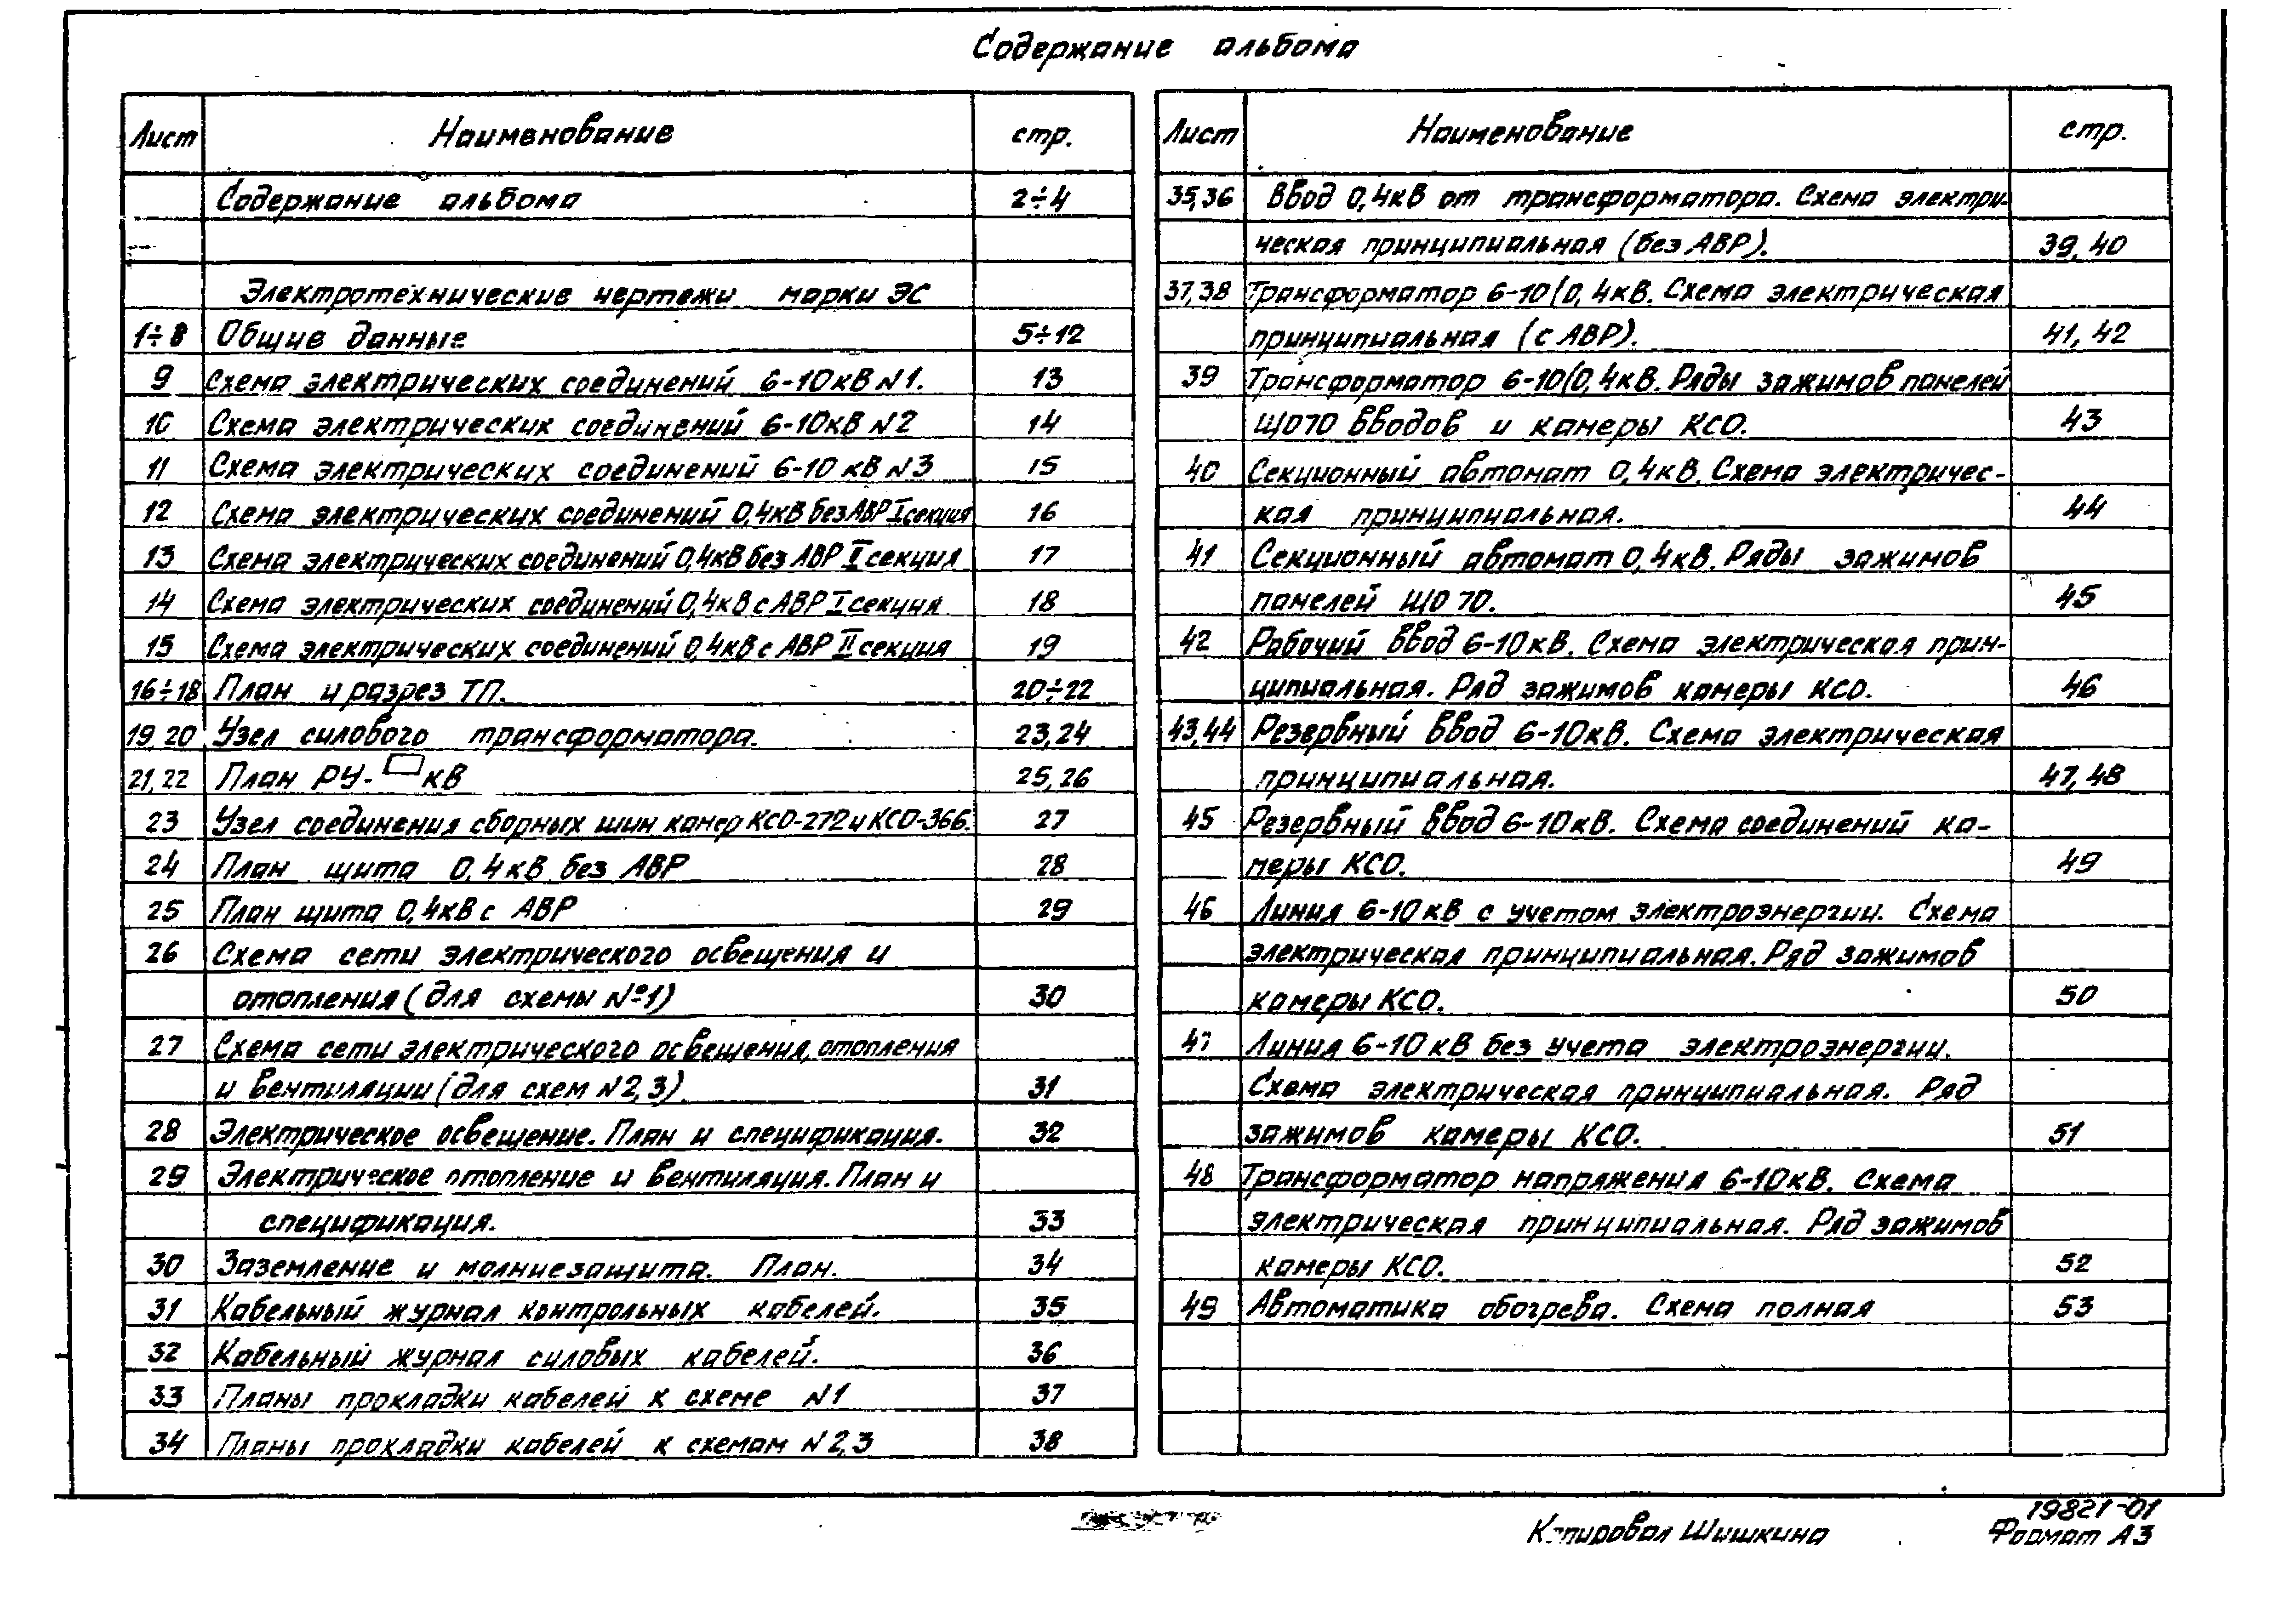 Содержание альбома
Лист Наименование стр.
Содержание альбома 2÷4
Электротехнические чертежи марки ЭС
1÷8 Общие данные 5÷12
9 Схема электрических соединений 6-10кВ N1. 13
10 Схема электрических соединений 6-10кВ N2 14
11 Схема электрических соединений 6-10 кВ N3 15
12 Схема электрических соединений 0,4кВ без АВР I секция 16
13 Схема электрических соединений 0,4кВ без АВР II секция 17
14 Схема электрических соединений 0,4кВ с АВР I секция 18
15 Схема электрических соединений 0,4кВ с АВР II секция 19
16÷18 План и разрез ТП. 20÷22
19,20 Узел силового трансформатора. 23,24
21,22 План РУ-□кВ 25,26
23 Узел соединения сборных шин камер КСО-272 и КСО-366. 27
24 План щита 0,4кВ без АВР 28
25 План щита 0,4кВ с АВР 29
26 Схема сети электрического освещения и
отопления (для схемы №1) 30
27 Схема сети электрического освещения, отопления
и вентиляции (для схем N2,3) 31
28 Электрическое освещение. План и спецификация. 32
29 Электрическое отопление и вентиляция. План и
спецификация. 33
30 Заземление и молниезащита. План. 34
31 Кабельный журнал контрольных кабелей. 35
32 Кабельный журнал силовых кабелей. 36
33 Планы прокладки кабелей к схеме N1 37
34 Планы прокладки кабелей к схемам N2,3 38
Лист Наименование стр.
35,36 Ввод 0,4кВ от трансформатора. Схема электри-
ческая принципиальная (без АВР). 39,40
37,38 Трансформатор 6-10/0,4кВ. Схема электрическая
принципиальная (с АВР). 41,42
39 Трансформатор 6-10/0,4кВ. Ряды зажимов панелей
ЩО70 вводов и камеры КСО. 43
40 Секционный автомат 0,4кВ. Схема электричес-
кая принципиальная. 44
41 Секционный автомат 0,4кВ. Ряды зажимов
панелей ЩО 70. 45
42 Рабочий ввод 6-10кВ. Схема электрическая прин-
ципиальная. Ряд зажимов камеры КСО. 46
43,44 Резервный ввод 6-10кВ. Схема электрическая
принципиальная. 47,48
45 Резервный ввод 6-10кВ. Схема соединений ка-
меры КСО. 49
46 Линия 6-10 кВ с учетом электроэнергии. Схема
электрическая принципиальная. Ряд зажимов
камеры КСО. 50
47 Линия 6-10 кВ без учета электроэнергии.
Схема электрическая принципиальная. Ряд
зажимов камеры КСО. 51
48 Трансформатор напряжения 6-10кВ. Схема
электрическая принципиальная. Ряд зажимов
камеры КСО. 52
49 Автоматика обогрева. Схема полная 53
19821-01
Копировал Шишкина Формат А3